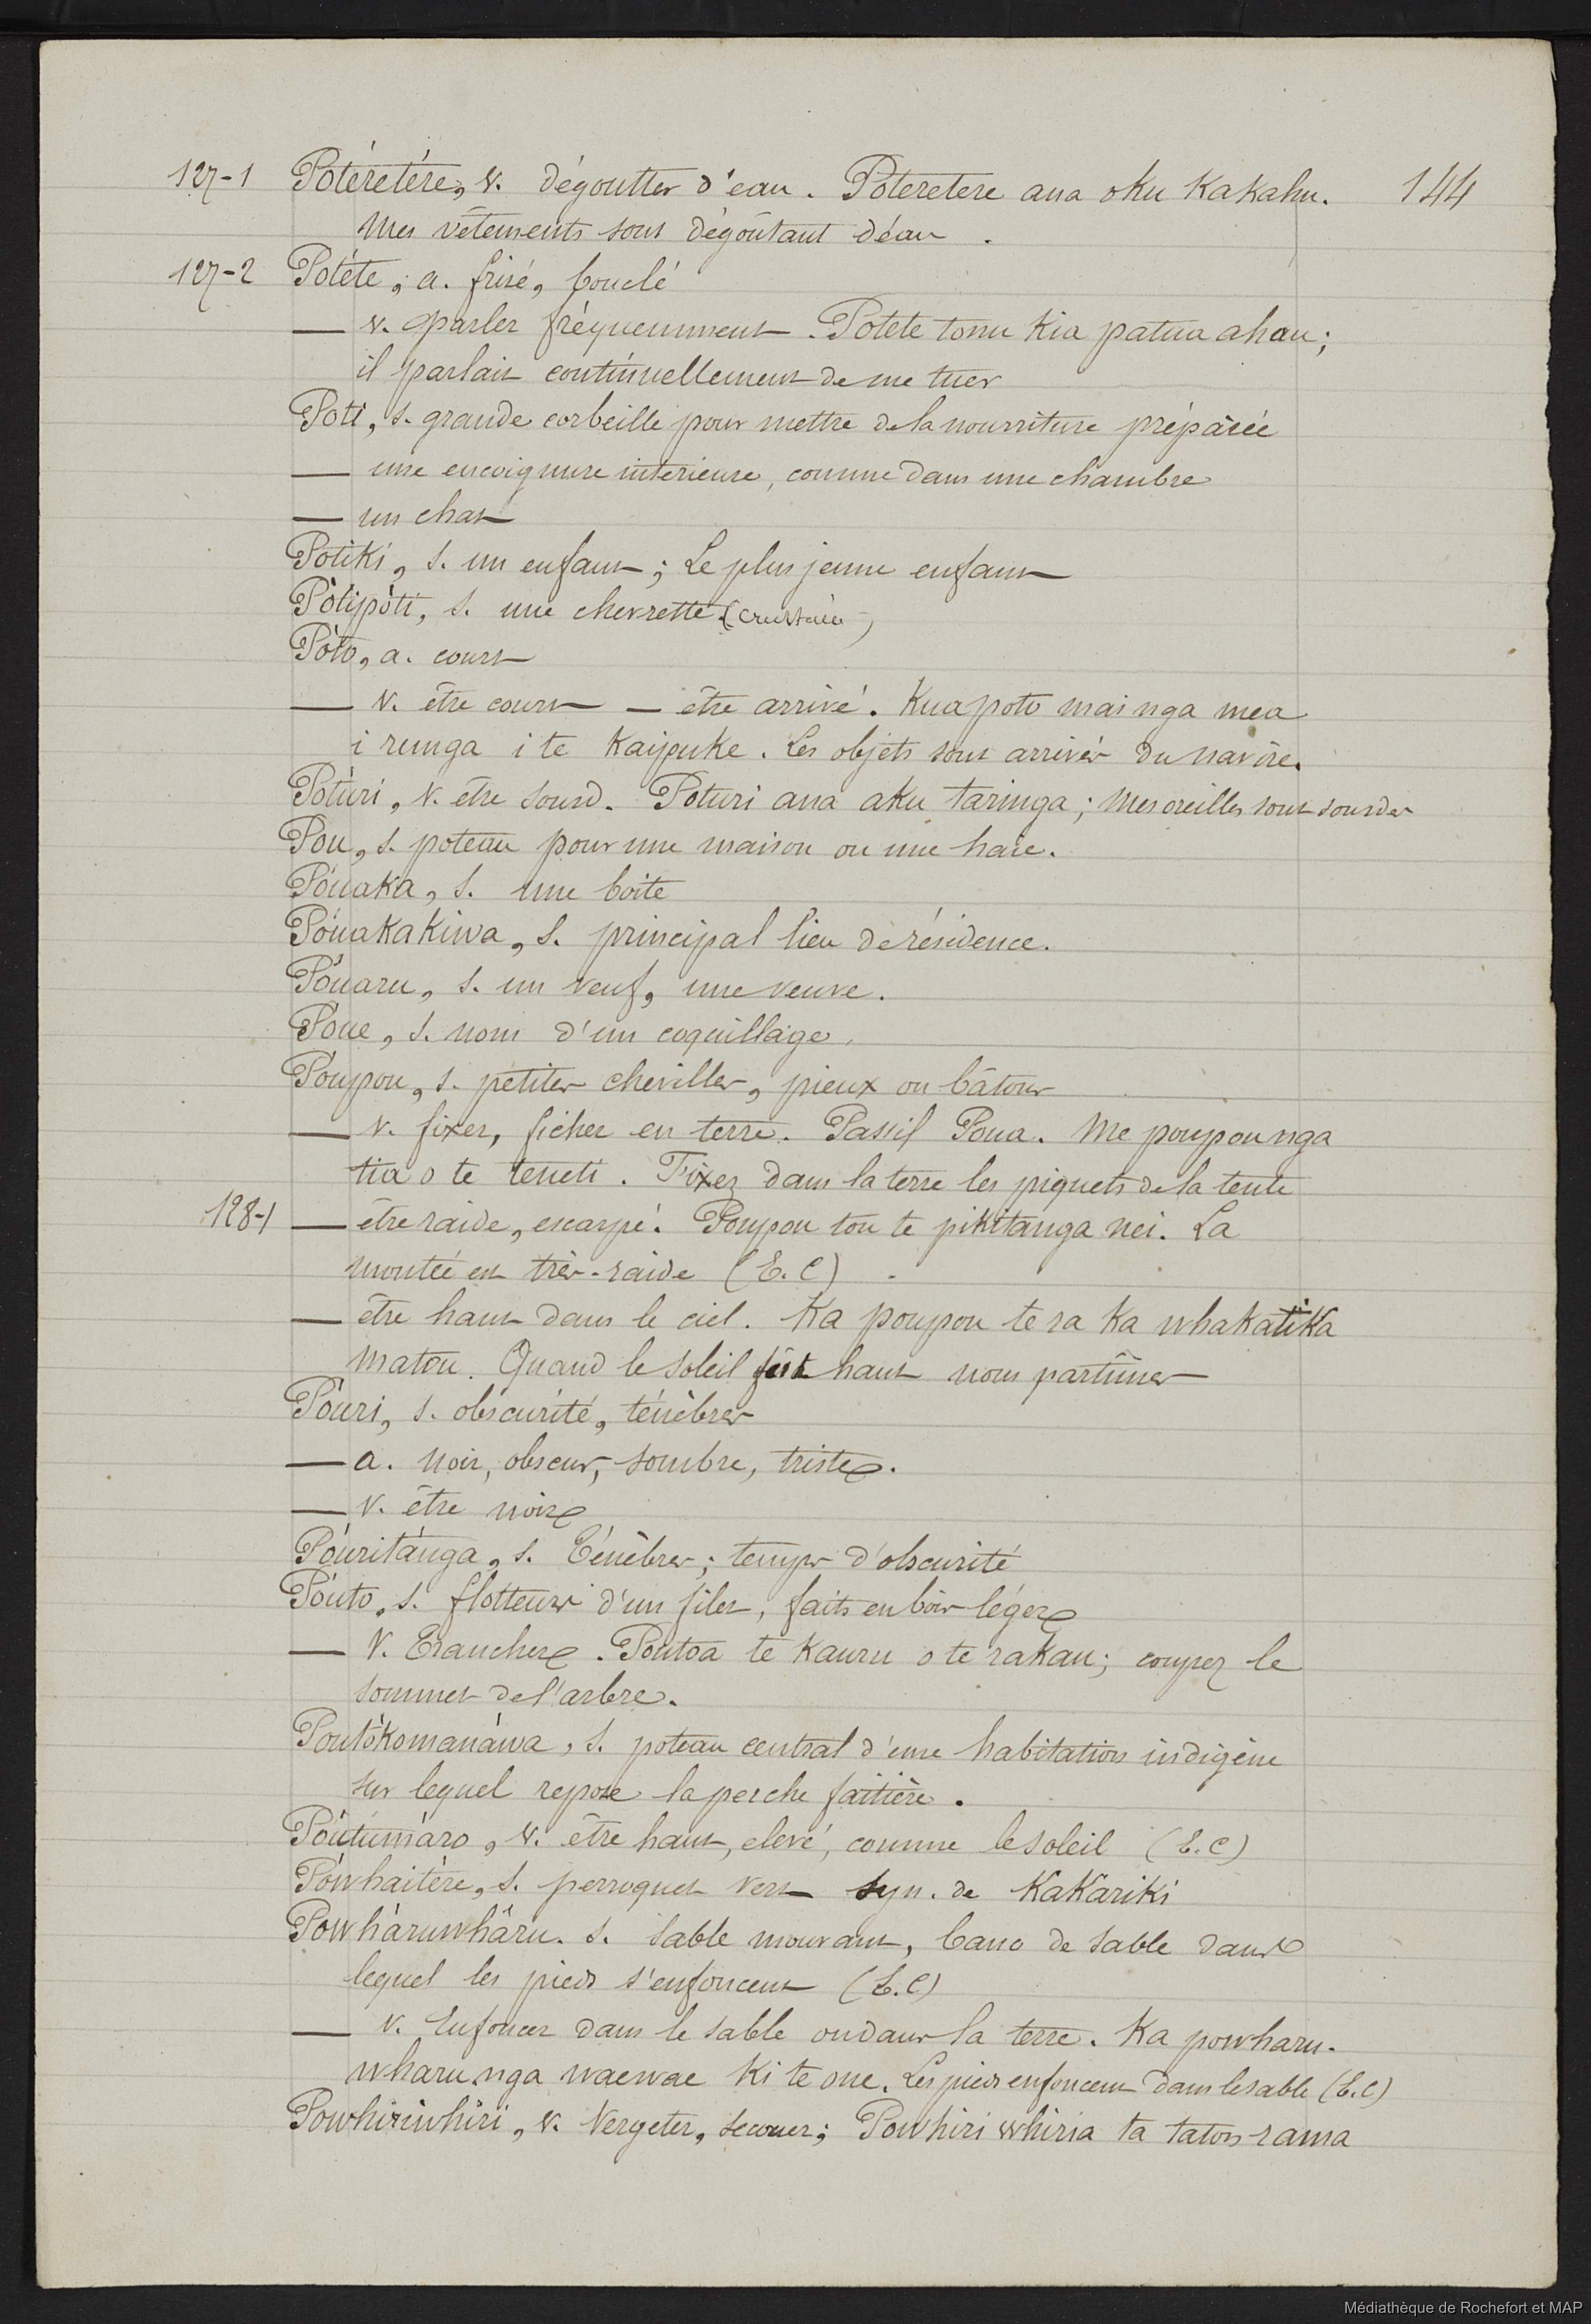 127-1 Pōtéretére, v. dégoutter d'eau. Poteretere ana oku Kakahu. 144
Mes vêtements sont dégoûtant d'eau.
127-2 Potéte, a. frisé, bouclé
— v. parler fréquemment. Potete tonu Kia patua ahau;
il parlait continuellement de me tuer
Poti, s. grande corbeille pour mettre de la nourriture préparée
— une encoignure intérieure, comme dans une chambre
— un chat
Potiki, s. un enfant; Le plus jeune enfant
Pótipóti, s. une chevrette (crustacé)
Póto, a. court
— v. être court — être arrivé. Kua poto mai nga mea
i runga i te Kaipuke. Les objets sont arrivés du navire.
Potúri, v. être sourd. Poturi ana aku taringa; Mes oreilles sont sourdes
Pou, s. poteau pour une maison ou une haie.
Póuaka, s. une boite
Póuakakiwa, s. principal lieu de résidence.
Póuaru, s. un veuf, une veuve.
Póue, s. nom d'un coquillage.
Póupou, s. petites chevilles, pieux ou bâtons
— v. fixer, ficher en terre. Passif Poua. Me poupou nga
tia o te teneti. Fixez dans la terre les piquets de la tente
128-1 — être raide, escarpé. Poupou tou te pikitanga nei. La
montée est très-raide (E.C)
— être haut dans le ciel. Ka poupou te ra ka whakatika
matou. Quand le soleil fût haut nous partîmes
Póuri, s. obscurité, ténèbres
— a. noir, obscur, sombre, triste.
— v. être noir
Póuritánga, s. Ténèbres; temps d'obscurité
Póuto, s. flotteurs d'un filet, faits en bois léger
— V. Trancher. Poutoa te Kauru o te rakau; coupez le
sommet de l'arbre.
Poutókomanáwa, s. poteau central d'une habitation indigène
sur lequel repose la perche faîtière.
Póutúmáro, v. être haut, elevé, comme le soleil (E.C)
Pówhaitére, s. perroquet vert syn. de KaKariki
Powháruwháru. s. sable mouvant, banc de sable dans
lequel les pieds s'enfoncent (E.C)
— v. Enfoncer dans le sable ou dans la terre. Ka powharu-
wharu nga waewae Ki te one. Les pieds enfoncent dans le sable (E.C)
Powhiriwhiri, v. Vergeter, secouer; Powhiri whiria ta tatou rama
Médiathèque de Rochefort et MAP